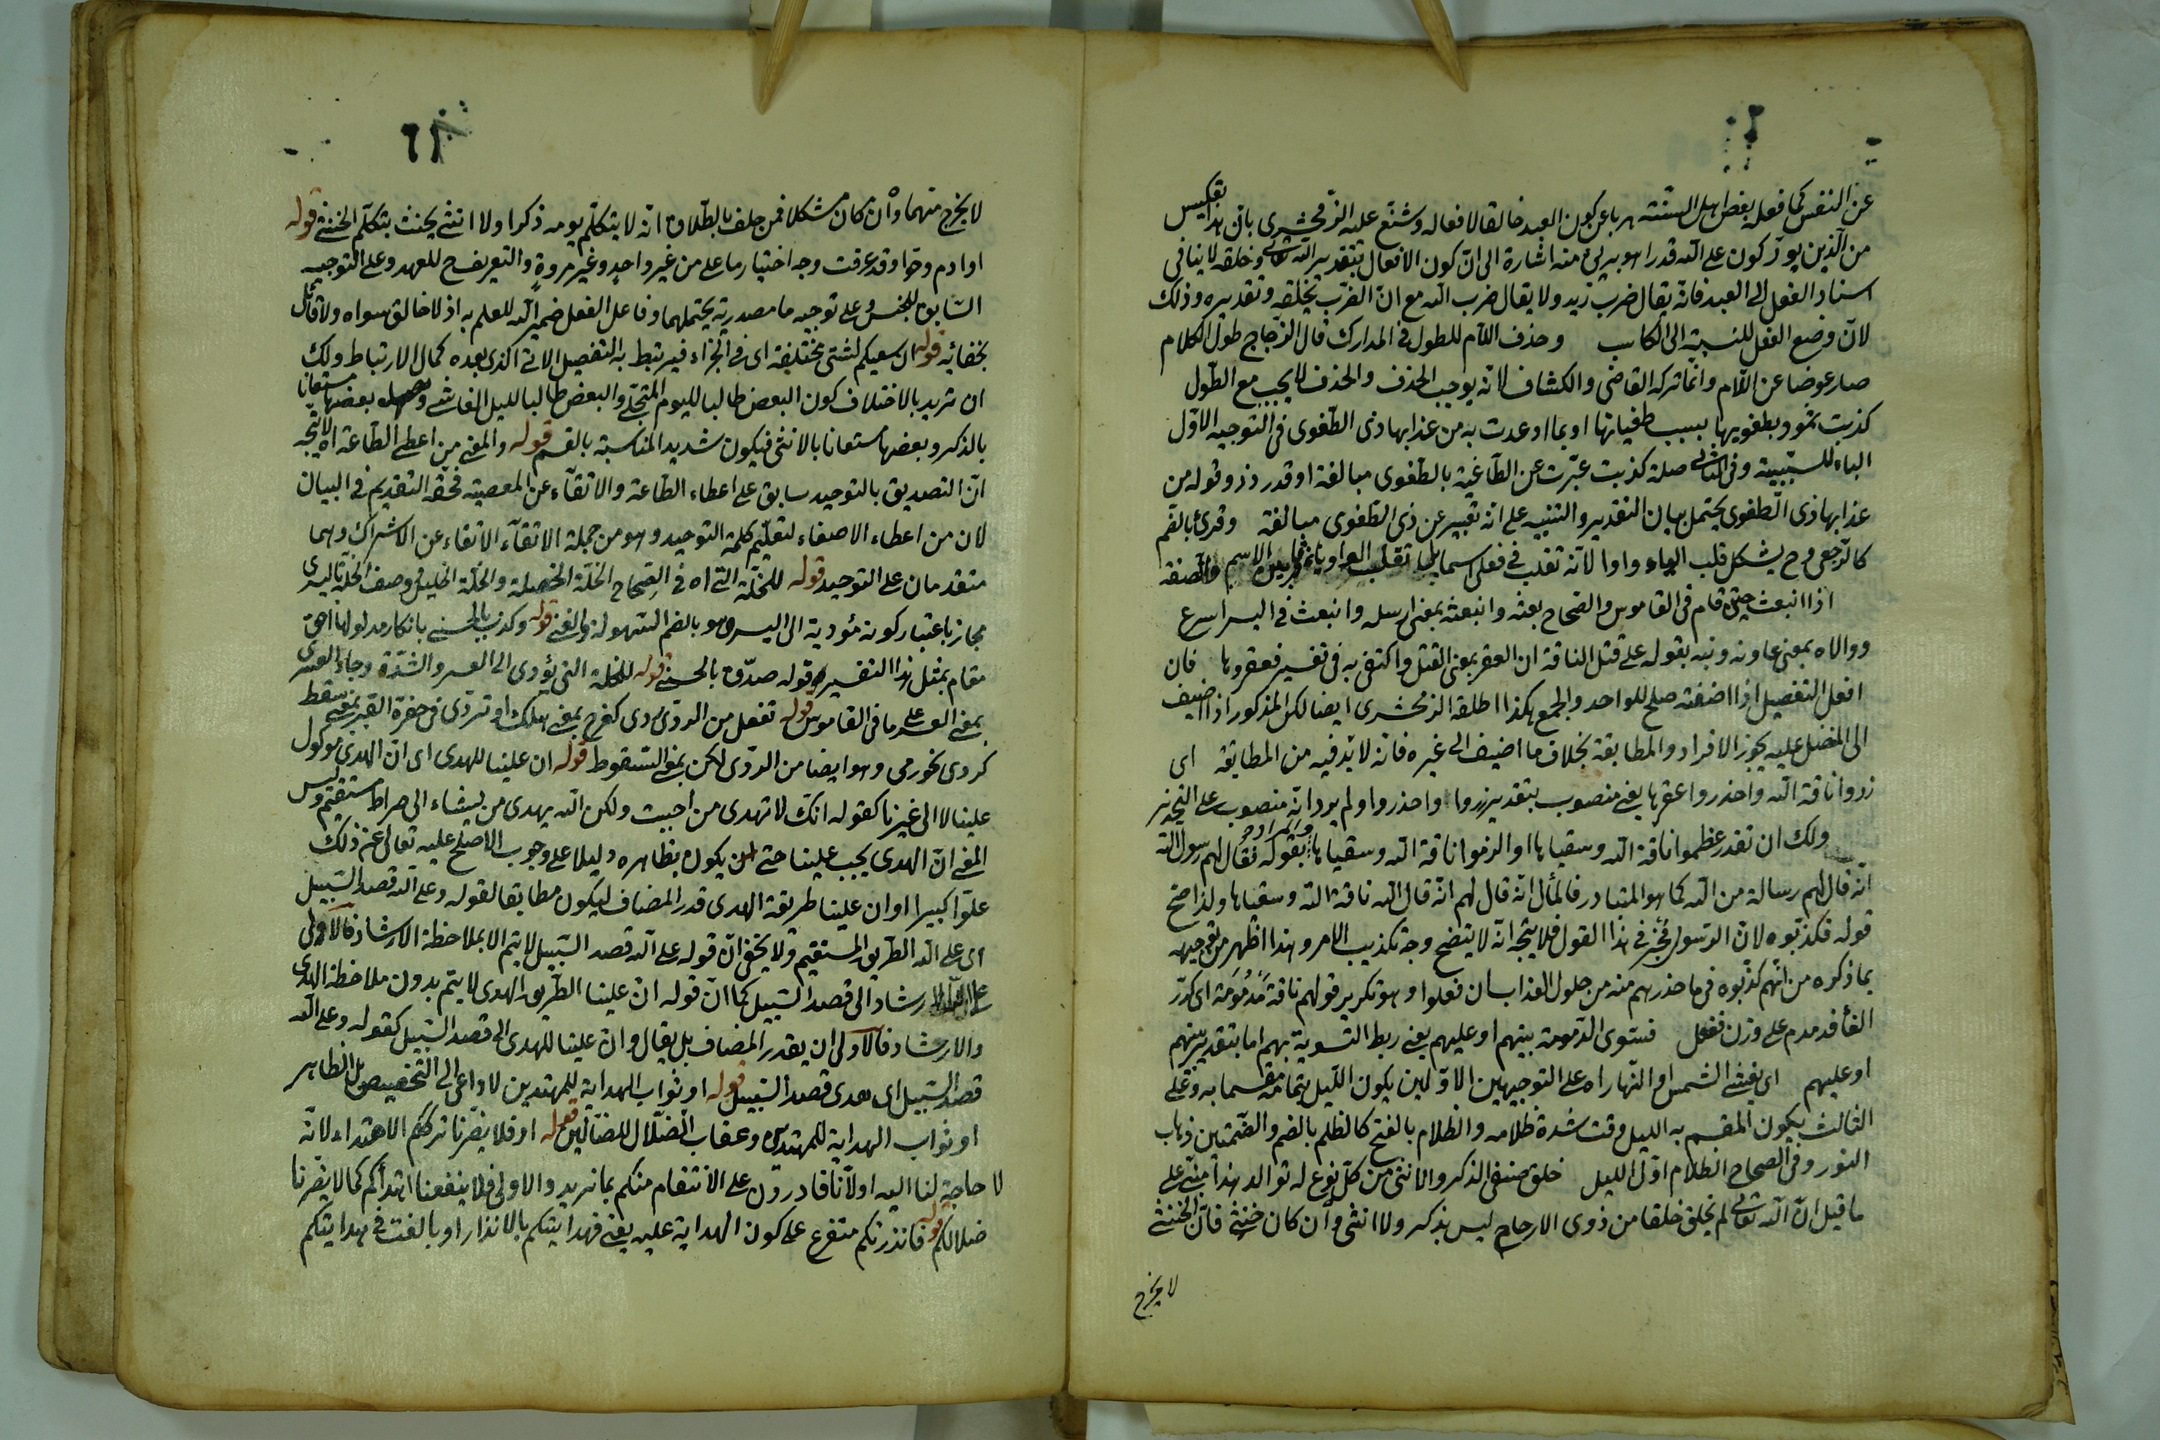 عن النفس كما فعله بعض اهل السنة هربا عن كون العبد خالقا لافعاله وشنع عليه الزمخشرى بان هذا تعكيس
من الذين يورّكون على الله قدرا هو برئ منه اشارة الى ان كون الافعال بتقدير الله تعالى وخلقه لا ينافى
اسناد الفعل الى العبد فانه يقال ضرب زيد ولا يقال ضرب الله مع ان الضرب بخلقه وتقديره وذلك
لان وضع الفعل للنسبة الى الكاسب وحذف اللام للطول فى المدارك قال الزجاج طول الكلام
صار عوضا عن اللام وانما تركه القاضى والكشاف لانه يوجب الحذف والحذف لا يجب مع الطول
كذبت ثمود بطغويها بسبب طغيانها او بما اوعدت به من عذابها ذى الطغوى فى التوجيه الاول
الباء للسببية وفى الثانى صلة كذبت عبّرت عن الطاغية بالطغوى مبالغة او قدر ذو وقوله من
عذابها ذى الطغوى يحتمل بيان التقدير والتنبيه على انه تعبير عن ذى الطغوى مبالغة وقرئ بالضم
كالرجعى وح يشكل قلب الياء واوا لانه تقلب فى فعلى اسما
اذ انبعث حين قام فى القاموس والصحاح بعثه وانبعثه بمعنى ارسله وانبعث فى السير اسرع
ووالاه بمعنى عاونه ونبه بقوله على قتل الناقة ان العقر بمعنى القتل واكتفى به فى تفسير فعقروها فان
افعل التفضيل اذا اضفته صلح للواحد والجمع هكذا اطلقه الزمخشرى ايضا لكن المذكور اذا اضيف
الى المفضل عليه يجوز الافراد والمطابقة بخلاف ما اضيف الى غيره فانه لا بد فيه من المطابقة اى
ذروا ناقة الله واحذروا عقرها يعنى منصوب بتقدير ذروا واحذروا ولم يرد انه منصوب على التحذير
ولك ان تقدر عظموا ناقة الله وسقياها او الزموا ناقة الله وسقياها بقوله فقال لهم رسول الله
انه قال لهم رسالة من الله كما هو المتبادر فالمأل انه قال لهم انه قال الله ناقة الله وسقياها ولذا صح
قوله فكذبوه لان الرسول مخبر فى هذا القول فلا يتجه انه لا يتضح وجه تكذيب الامر وهذا اظهر من توجيهه
بما ذكره من انهم كذبوه فى ما حذرهم منه من حلول العذاب ان فعلوا وهو تكرير قولهم ناقة مدمومة اى كرّر
الفأ فدمدم على وزن فعفل فسوى الدمدمة بينهم او عليهم يعنى ربط التسوية بهم اما بتقدير بينهم
او عليهم اى يغشى الشمس او النهار اه على التوجيهين الاولين يكون الليل بتمامه مقسما به وعلى
الثالث يكون المقسم به الليل وقت شدة ظلامه والظلام بالفتح كالظلم بالضم والضمتين ذهاب
النور وفى الصحاح الظلام اول الليل خلق صنفى الذكر والانثى من كل نوع له توالد هذا مبنى على
ما قيل ان الله تعالى لم يخلق خلقا من ذوى الارحام ليس بذكر ولا انثى وان كان خنثى فان الخنثى
لا يخرج
٦١
لا يخرج منهما وان كان مشكلا فمن حلف بالطلاق انه لا يتكلم يومه ذكرا ولا انثى يحنث بتكلم الخنثى قوله
او ادم وحوا وقد عرفت وجه اختيار ما على من غير واحد وغير مروة والتعريف ح للعهد وعلى التوجيه
السابق للجنس وعلى توجيه ما مصدرية يحتملهما وفاعل الفعل ضمير الله للعلم به اذ لا خالق سواه ولا قائل
بخفائه قوله ان سعيكم لشتى مختلفة اى فى الجزاء فيرتبط به التفصيل الاتى الذى بعده كمال الارتباط ولك
ان تريد بالاختلاف كون البعض طالبا لليوم المتجلى والبعض طالبا لليل الغاشى وبعضها مستعانا
بالذكر وبعضها مستعانا بالانثى فيكون شديد المناسبة بالقسم قوله والمعنى من اعطى الطاعة اه لا يتجه
ان التصديق بالتوحيد سابق على اعطاء الطاعة والاتقآء عن المعصية فحقه التقديم فى البيان
لان من اعطاء الاصغاء لتعليم كلمة التوحيد وهو من جملة الاتقآء الاتقاء عن الاشراك وهما
متقدمان على التوحيد قوله للخلة التى اه فى الصحاح الخلة الخصلة والخلة الخليل وصف الخلة باليسرى
مجاز باعتبار كونه مؤدية الى اليسر وهو بالضم السهولة والغنى قوله وكذب بالحسنى بانكار مدلولها احق
مقام بمثل هذا التفسير قوله صدق بالحسنى قوله للخلة التى تؤدى الى العسر والشدة وجاء العسر
بمعنى العسر على ما فى القاموس قوله تفعل من الردى ردى كفرح بمعنى هلك او تردى فى حفرة القبر بمعنى سقط
كردى كحورمى وهو ايضا من الردى لكن بمعنى السقوط قوله ان علينا للهدى اى ان الهدى موكول
علينا لا الى غيرنا كقوله انك لا تهدى من احببت ولكن الله يهدى من يشاء الى صراط مستقيم وليس
المعنى ان الهدى يجب علينا حتى يكون بظاهره دليلا على وجوب الاصلح عليه تعالى عن ذلك
علوّا كبيرا او ان علينا طريقة الهدى قدر المضاف ليكون مطابقا لقوله وعلى الله قصد السبيل
اى على الله الطريق المستقيم ولا يخفى ان قوله على الله قصد السبيل لا يتم الا بملاحظة الارشاد فالاولى
على الله الارشاد الى قصد السبيل كما ان قوله ان علينا الطريق الهدى لا يتم بدون ملاحظة الهدى
والارشاد فالاولى ان يقدر المضاف بل يقال وان علينا للهدى الى قصد السبيل كقوله وعلى الله
قصد السبيل اى هدى قصد السبيل قوله او ثواب الهداية للمهتدين لا داعى الى التخصيص بل الظاهر
او ثواب الهداية للمهتدين وعقاب الضلال للضالين قوله او فلا يضرنا ترككم الاهتداء لانه
لا حاجة لنا اليه او لانا قادرون على الانتقام منكم بما نريد والاولى فلا ينفعنا اهتدأكم كما لا يضرنا
ضلالكم قوله فانذرتكم متفرع على كون الهداية عليه يعنى فهدايتكم بالانذار او بالغت فى هدايتكم